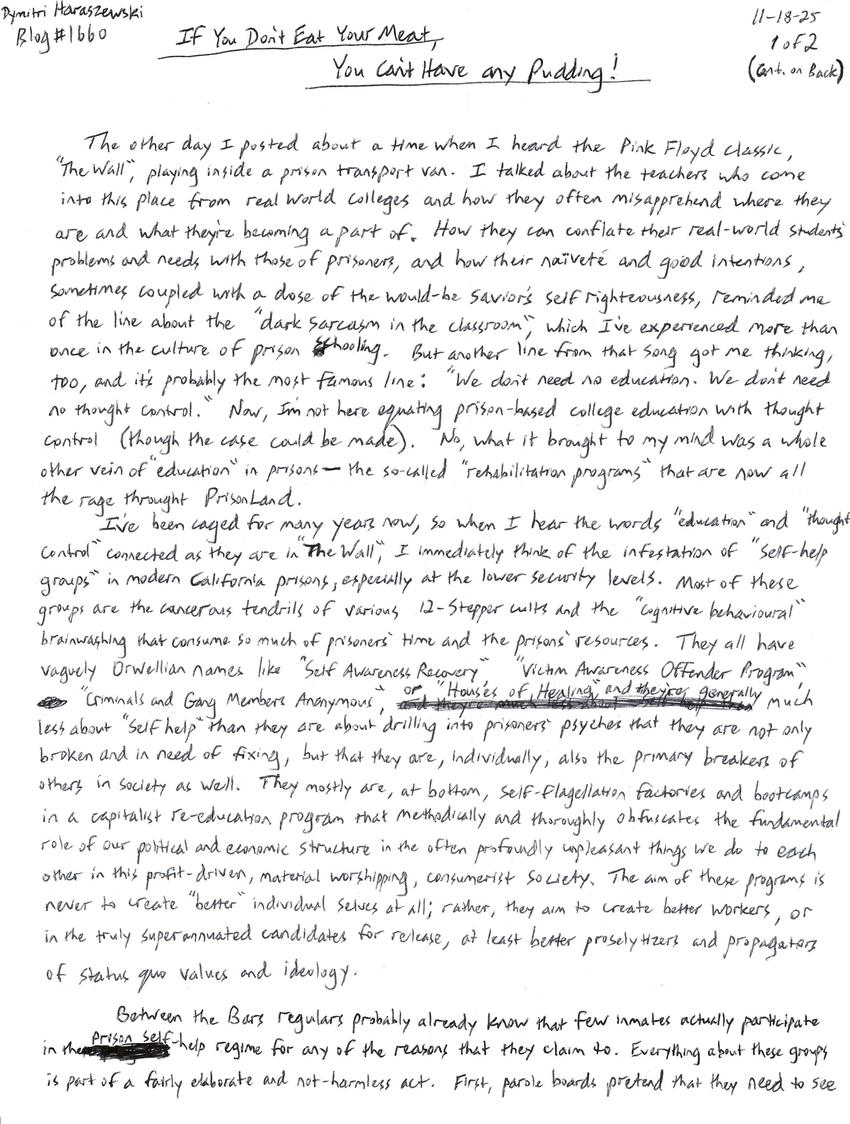 Dymitri Haraszewski
Blog #1660
11-18-25
1 of 2
(Cont. on Back)
If You Don't Eat Your Meat,
You Can't Have any Pudding!
The other day I posted about a time when I heard the Pink Floyd classic,
"The Wall", playing inside a prison transport van. I talked about the teachers who come
into this place from real world colleges and how they often misapprehend where they
are and what they're becoming a part of. How they can conflate their real-world students'
problems and needs with those of prisoners, and how their naïveté and good intentions,
sometimes coupled with a dose of the would-be savior's self righteousness, reminded me
of the line about the "dark sarcasm in the classroom", which I've experienced more than
once in the culture of prison schooling. But another line from that song got me thinking,
too, and it's probably the most famous line: "We don't need no education. We don't need
no thought control." Now, I'm not here equating prison-based college education with thought
control (though the case could be made). No, what it brought to my mind was a whole
other vein of "education" in prisons — the so-called "rehabilitation programs" that are now all
the rage throught PrisonLand.
I've been caged for many years now, so when I hear the words "education" and "thought
control" connected as they are in "The Wall", I immediately think of the infestation of "self-help
groups" in modern California prisons, especially at the lower security levels. Most of these
groups are the cancerous tendrils of various 12-Stepper cults and the "cognitive behavioural"
brainwashing that consume so much of prisoners' time and the prisons' resources. They all have
vaguely Orwellian names like "Self Awareness Recovery" "Victim Awareness Offender Program"
"Criminals and Gang Members Anonymous", or "Houses of Healing" and they're generally much
less about "self help" than they are about drilling into prisoners' psyches that they are not only
broken and in need of fixing, but that they are, individually, also the primary breakers of
others in society as well. They mostly are, at bottom, self-flagellation factories and bootcamps
in a capitalist re-education program that methodically and thoroughly obfuscates the fundamental
role of our political and economic structure in the often profoundly unpleasant things we do to each
other in this profit-driven, material worshipping, consumerist society. The aim of these programs is
never to create "better" individual selves at all; rather, they aim to create better workers, or
in the truly superannuated candidates for release, at least better proselytizers and propagators
of status quo values and ideology.
Between the Bars regulars probably already know that few inmates actually participate
in the prison self-help regime for any of the reasons that they claim to. Everything about these groups
is part of a fairly elaborate and not-harmless act. First, parole boards pretend that they need to see